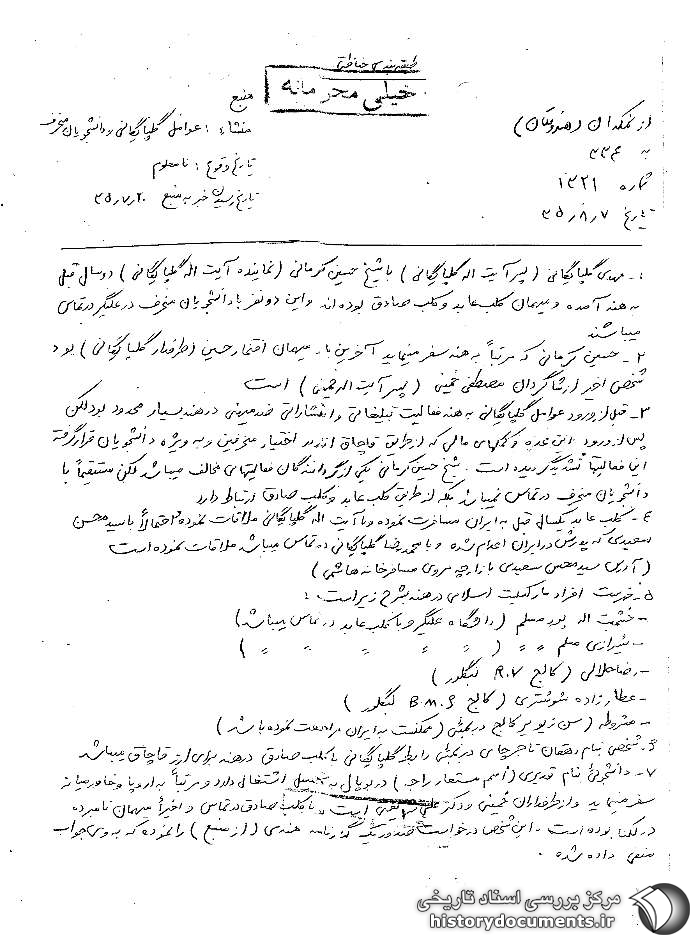 طبقه بندی حفاظتی
خیلی محرمانه
از نمکدان (هندوستان)
به ۳۳۴
شماره ۱۳۲۱
تاریخ ۳۵/۸/۷
منبع
منشاء : عوامل گلپایگانی و دانشجویان منحرف
تاریخ وقوع : نامعلوم
تاریخ رسیدن خبر به منبع ۳۵/۷/۲۰
۱ـ مهدی گلپایگانی (پسر آیت اله گلپایگانی) با شیخ حسین کرمانی (نماینده آیت اله گلپایگانی) دو سال قبل
به هند آمده و میهمان کلب عابد و کلب صادق بوده اند و این دو نفر با دانشجویان منحرف در علیگر در تماس
میباشند
۲ـ حسین کرمانی که مرتباً به هند سفر مینماید آخرین بار میهمان افتخار حسین (طرفدار گلپایگانی) بود
شخص اخیر از شاگردان مصطفی خمینی (پسر آیت اله خمینی) است
۳ـ قبل از ورود عوامل گلپایگانی به هند فعالیت تبلیغاتی و انتشاراتی ضد میهنی در هند بسیار محدود بود لکن
پس از ورود این عده و کمکهای مالی که از طریق قاچاق ارز در اختیار منحرفین و به ویژه دانشجویان قرار گرفته
این فعالیتها تشدید گردیده است . شیخ حسین کرمانی یکی از گردانندگان فعالیتهای مخالف میباشد لکن مستقیماً با
دانشجویان منحرف در تماس نمیباشد بلکه از طریق کلب عابد و کلب صادق ارتباط دارد
۴ـ کلب عابد یکسال قبل به ایران مسافرت نموده و با آیت اله گلپایگانی ملاقات نموده احتمالاً با سید محسن
سعیدی که پدرش در ایران اعدام شده و با محمدرضا گلپایگانی در تماس میباشد ملاقات نموده است
(آدرس سید محسن سعیدی بازارچه مروی مسافرخانه هاشمی)
۵ـ فهرست افراد مارکسیست اسلامی در هند بشرح زیر است :
ـ حشمت اله پور مسلم (دانشگاه علیگر و با کلب عابد در تماس میباشد)
ـ شیرازی مسلم 〃 〃 ( 〃 〃 〃 〃 〃 )
ـ رضا جلالی (کالج R.V بنگلور)
ـ عطارزاده شوشتری (کالج B.M.S بنگلور)
ـ مشروطه (سن زیویر کالج در بمبئی (ممکنست به ایران مراجعت نموده باشد)
۶ـ شخصی بنام دهقان تاجر چای در بمبئی رابط گلپایگانی با کلب صادق در هند برای ارز قاچاق میباشد
۷ـ دانشجوئی بنام قدیری (اسم مستعار راجه) در بوپال به تحصیل اشتغال دارد و مرتباً به اروپا و خاورمیانه
سفر مینماید و از طرفداران خمینی و دکتر علی است و با کلب صادق در تماس و اخیراً میهمان نامبرده
در لکن بوده است ـ این شخص درخواست صدور یک گذرنامه هندی (از منبع) را نموده که به وی جواب
منفی داده شده .
مرکز بررسی اسناد تاریخی
historydocuments.ir